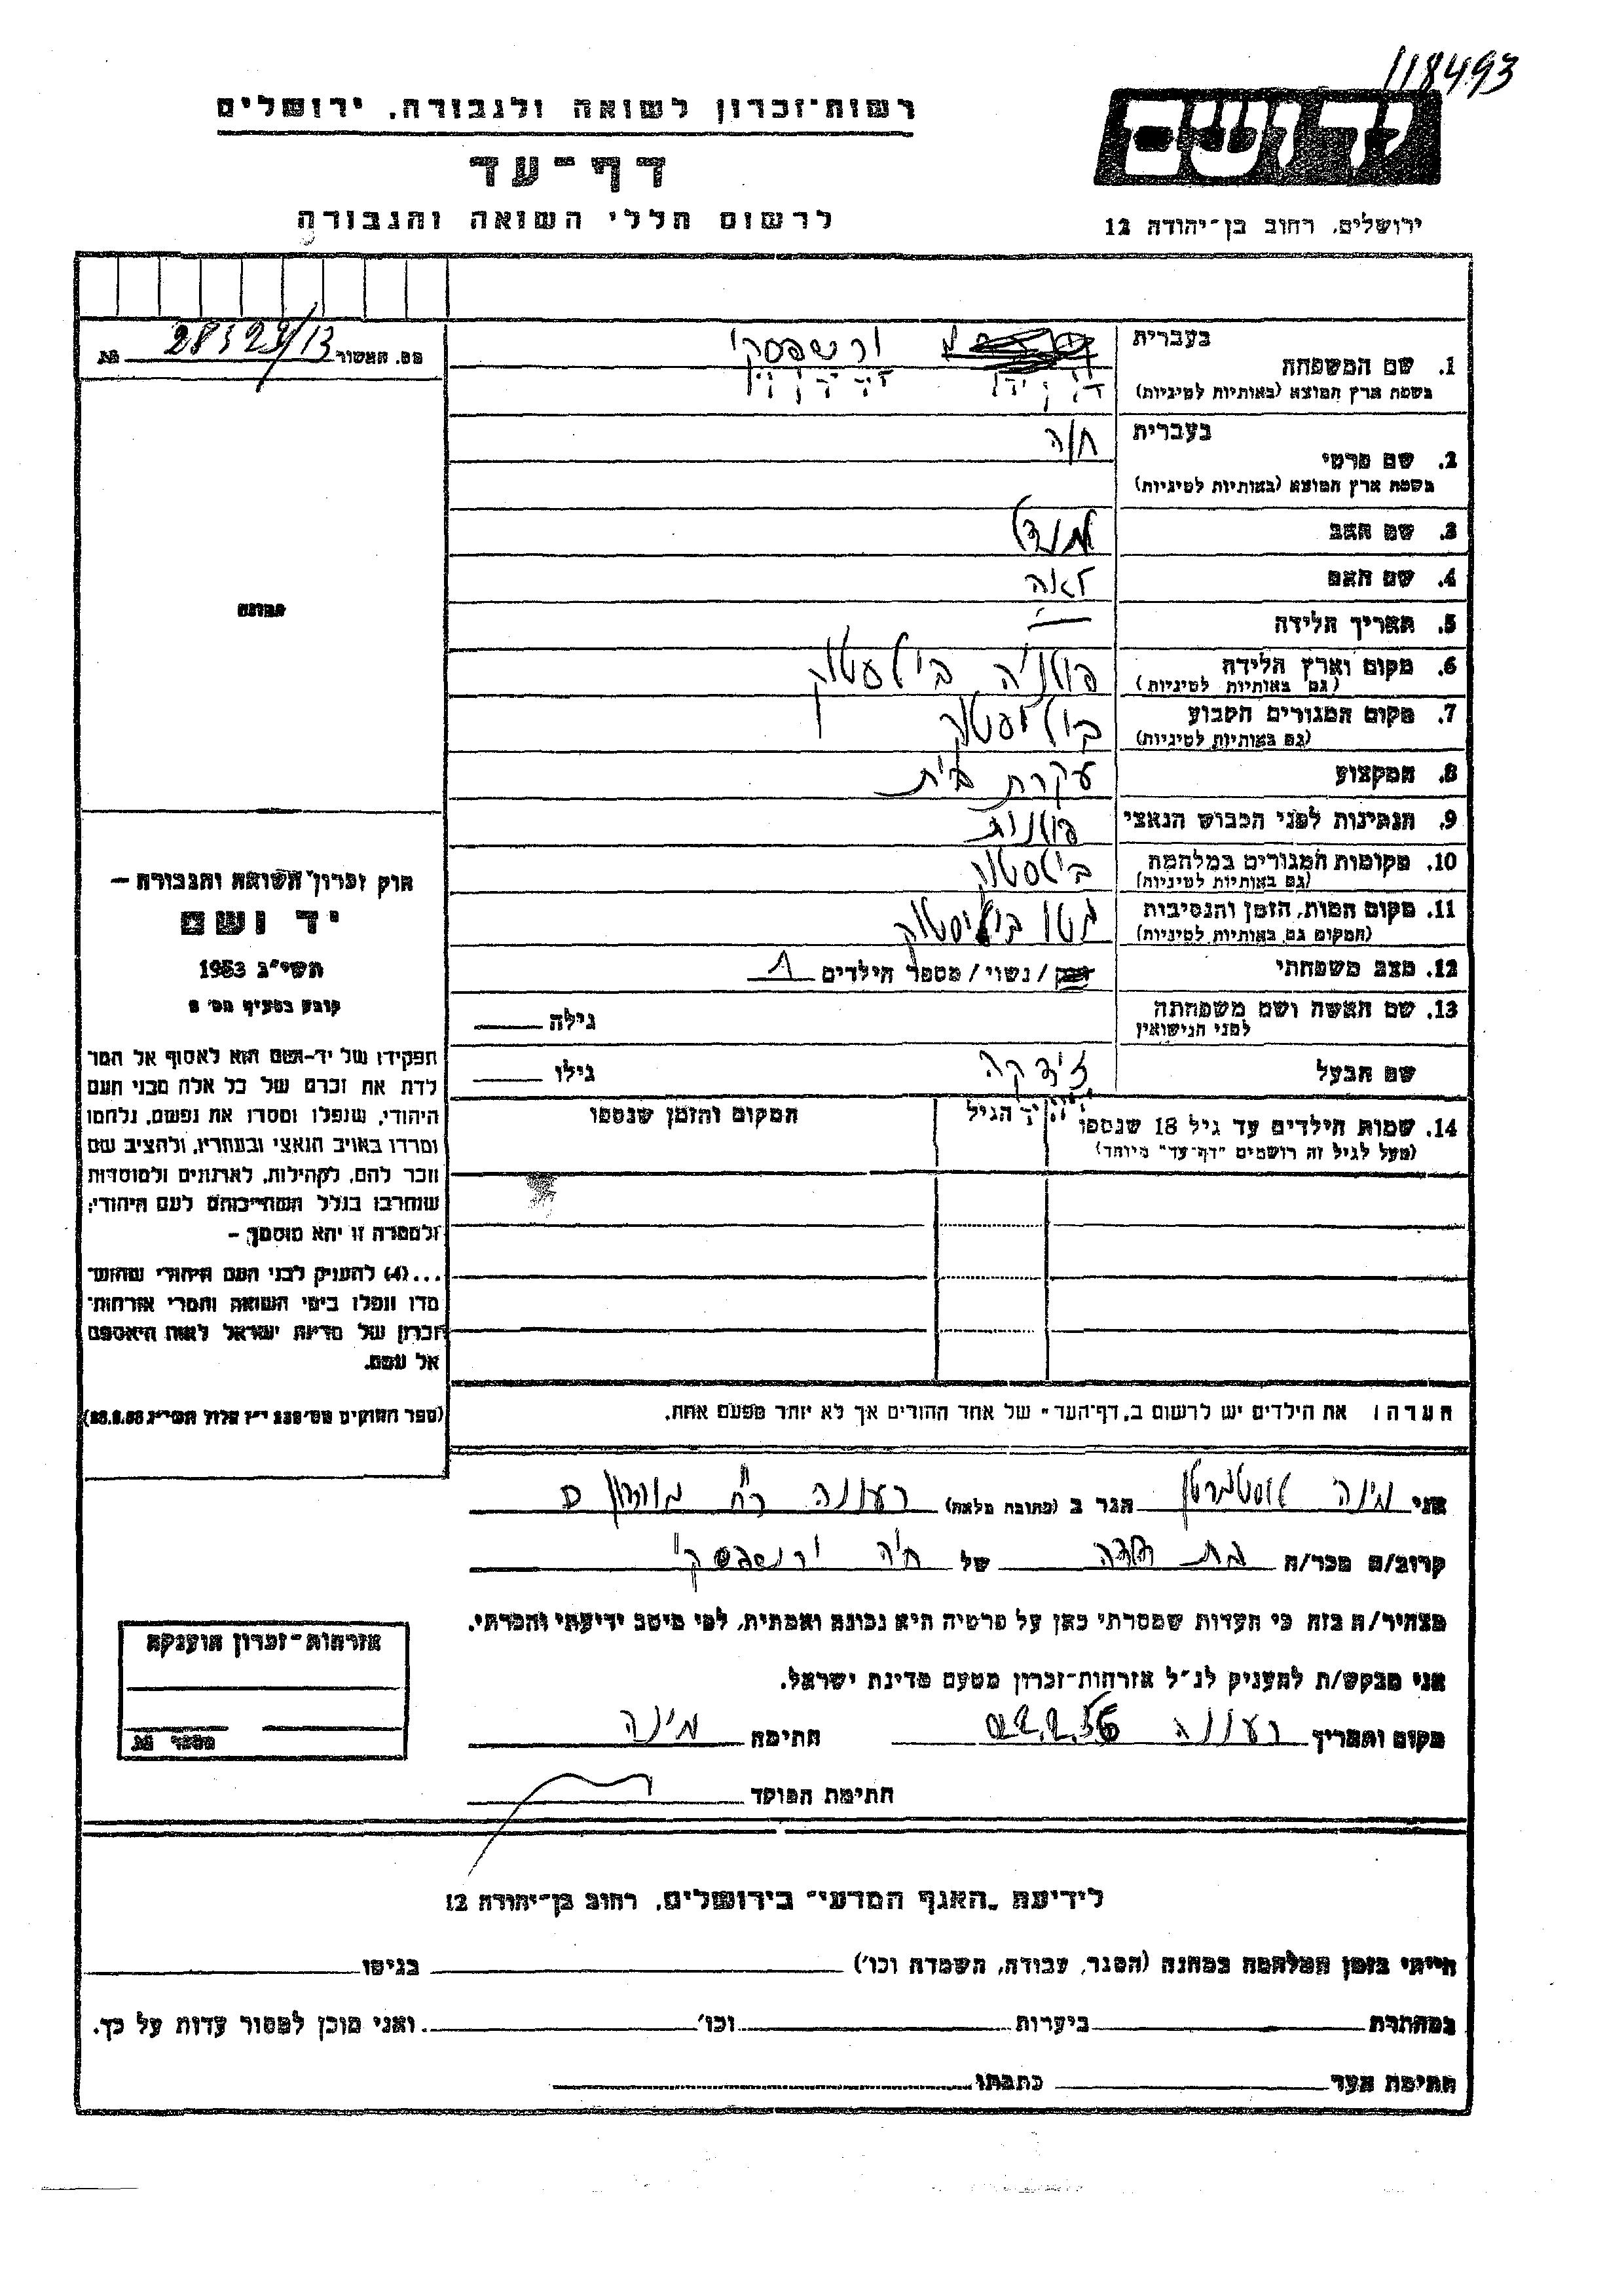 118493
רשות־זכרון לשואה ולגבורה, ירושלים
יד ושם
דף־עד
לרשום חללי השואה והגבורה
ירושלים, רחוב בן־יהודה 12
מס. האשור
1. שם המשפחה בעברית
בשפת ארץ המוצא (באותיות לטיניות)
2. שם פרטי בעברית חיה
בשפת ארץ המוצא (באותיות לטיניות)
3. שם האב
4. שם האם לאה
5. תאריך הלידה —
6. מקום וארץ הלידה פולניה ביאלסטוק
(גם באותיות לטיניות)
7. מקום המגורים הקבוע ביאליסטוק
(גם באותיות לטיניות)
8. המקצוע עקרת בית
9. הנתינות לפני הכבוש הנאצי פולנית
10. מקומות המגורים במלחמה ביאלסטוק
(גם באותיות לטיניות)
11. מקום המות, הזמן והנסיבות גטו ביאליסטוק
(המקום גם באותיות לטיניות)
12. מצב משפחתי רווק / נשוי / מספר הילדים 1
13. שם האשה ושם משפחתה גילה
לפני הנישואין
שם הבעל גילו
14. שמות הילדים עד גיל 18 שנספו הגיל המקום והזמן שנספו
(מעל לגיל זה רושמים "דף־עד" מיוחד)
הערה: את הילדים יש לרשום ב"דף־העד" של אחד ההורים אך לא יותר מפעם אחת.
תמונה
חוק זכרון השואה והגבורה —
יד ושם
תשי"ג 1953
קובע בסעיף מס' 2
תפקידו של יד־ושם הוא לאסוף אל המו־
לדת את זכרם של כל אלה מבני העם
היהודי, שנפלו ומסרו את נפשם, נלחמו
ומרדו באויב הנאצי ובעוזריו, ולהציב שם
וזכר להם, לקהילות, לארגונים ולמוסדות
שנחרבו בגלל השתייכותם לעם היהודי;
ולמטרה זו יהא מוסמך –
...(4) להעניק לבני העם היהודי שהוש־
מדו ונפלו בימי השואה והמרי אזרחות־
זכרון של מדינת ישראל לאות היאספם
אל עמם.
(ספר החוקים מס' 132 י"ז אלול תשי"ג 28.8.53)
אני מינה הגר ב (כתובת מלאה) רעננה רח'
קרוב/ה מכר/ה בת דודה של חיה
מצהיר/ה בזה כי העדות שמסרתי כאן על פרטיה היא נכונה ואמתית, לפי מיטב ידיעתי והכרתי.
אני מבקש/ת להעניק לנ"ל אזרחות־זכרון מטעם מדינת ישראל.
מקום ותאריך רעננה 22.2.56 חתימה מינה
חתימת הפוקד
אזרחות־זכרון הוענקה
מספר
לידיעת "האגף המדעי" בירושלים, רחוב בן־יהודה 12
הייתי בזמן המלחמה במחנה (הסגר, עבודה, השמדה וכו') בגיטו
במחתרת ביערות וכו' ואני מוכן למסור עדות על כך.
חתימת העד כתבתו